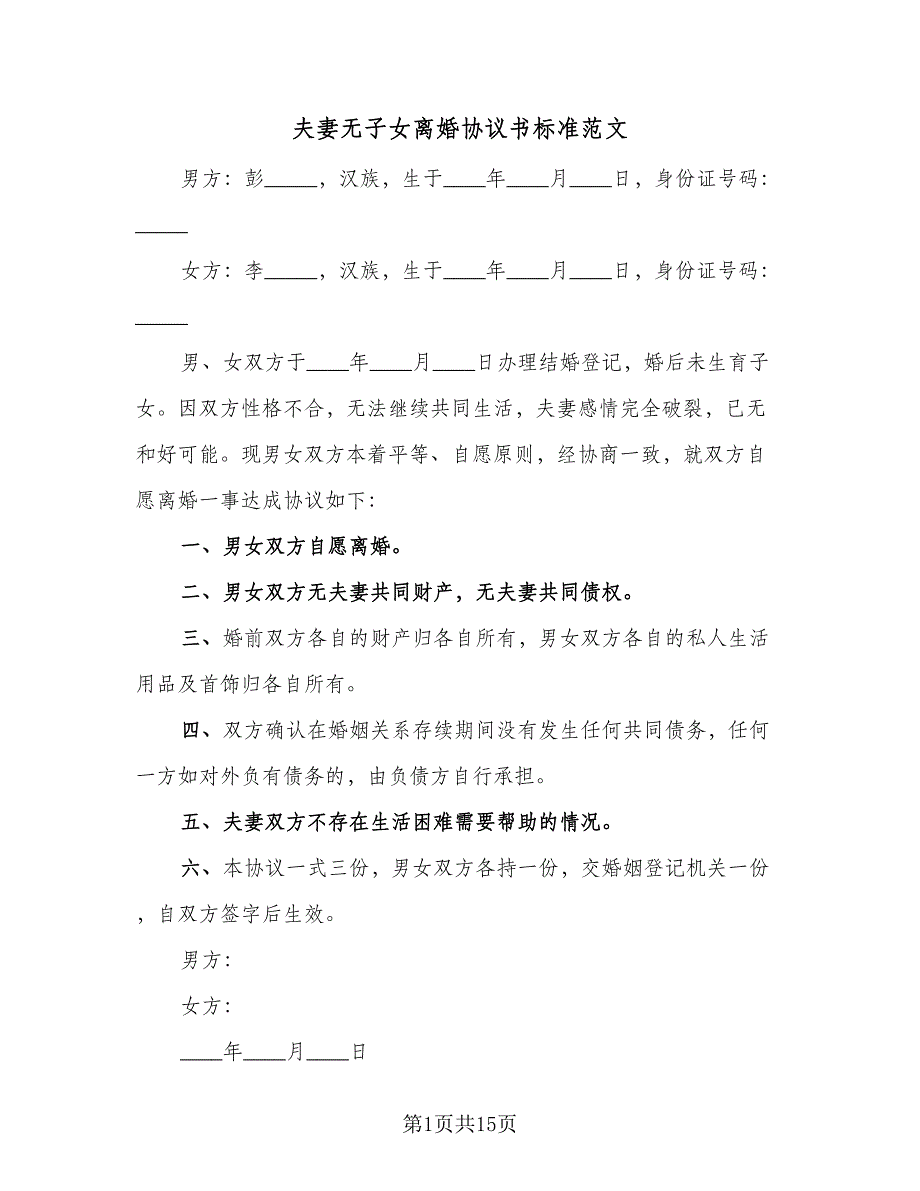 夫妻无子女离婚协议书标准范文
男方：彭_____，汉族，生于____年____月____日，身份证号码：
_____
女方：李_____，汉族，生于____年____月____日，身份证号码：
_____
男、女双方于____年____月____日办理结婚登记，婚后未生育子
女。因双方性格不合，无法继续共同生活，夫妻感情完全破裂，已无
和好可能。现男女双方本着平等、自愿原则，经协商一致，就双方自
愿离婚一事达成协议如下：
一、男女双方自愿离婚。
二、男女双方无夫妻共同财产，无夫妻共同债权。
三、婚前双方各自的财产归各自所有，男女双方各自的私人生活
用品及首饰归各自所有。
四、双方确认在婚姻关系存续期间没有发生任何共同债务，任何
一方如对外负有债务的，由负债方自行承担。
五、夫妻双方不存在生活困难需要帮助的情况。
六、本协议一式三份，男女双方各持一份，交婚姻登记机关一份
，自双方签字后生效。
男方：
女方：
____年____月____日
第1页共15页